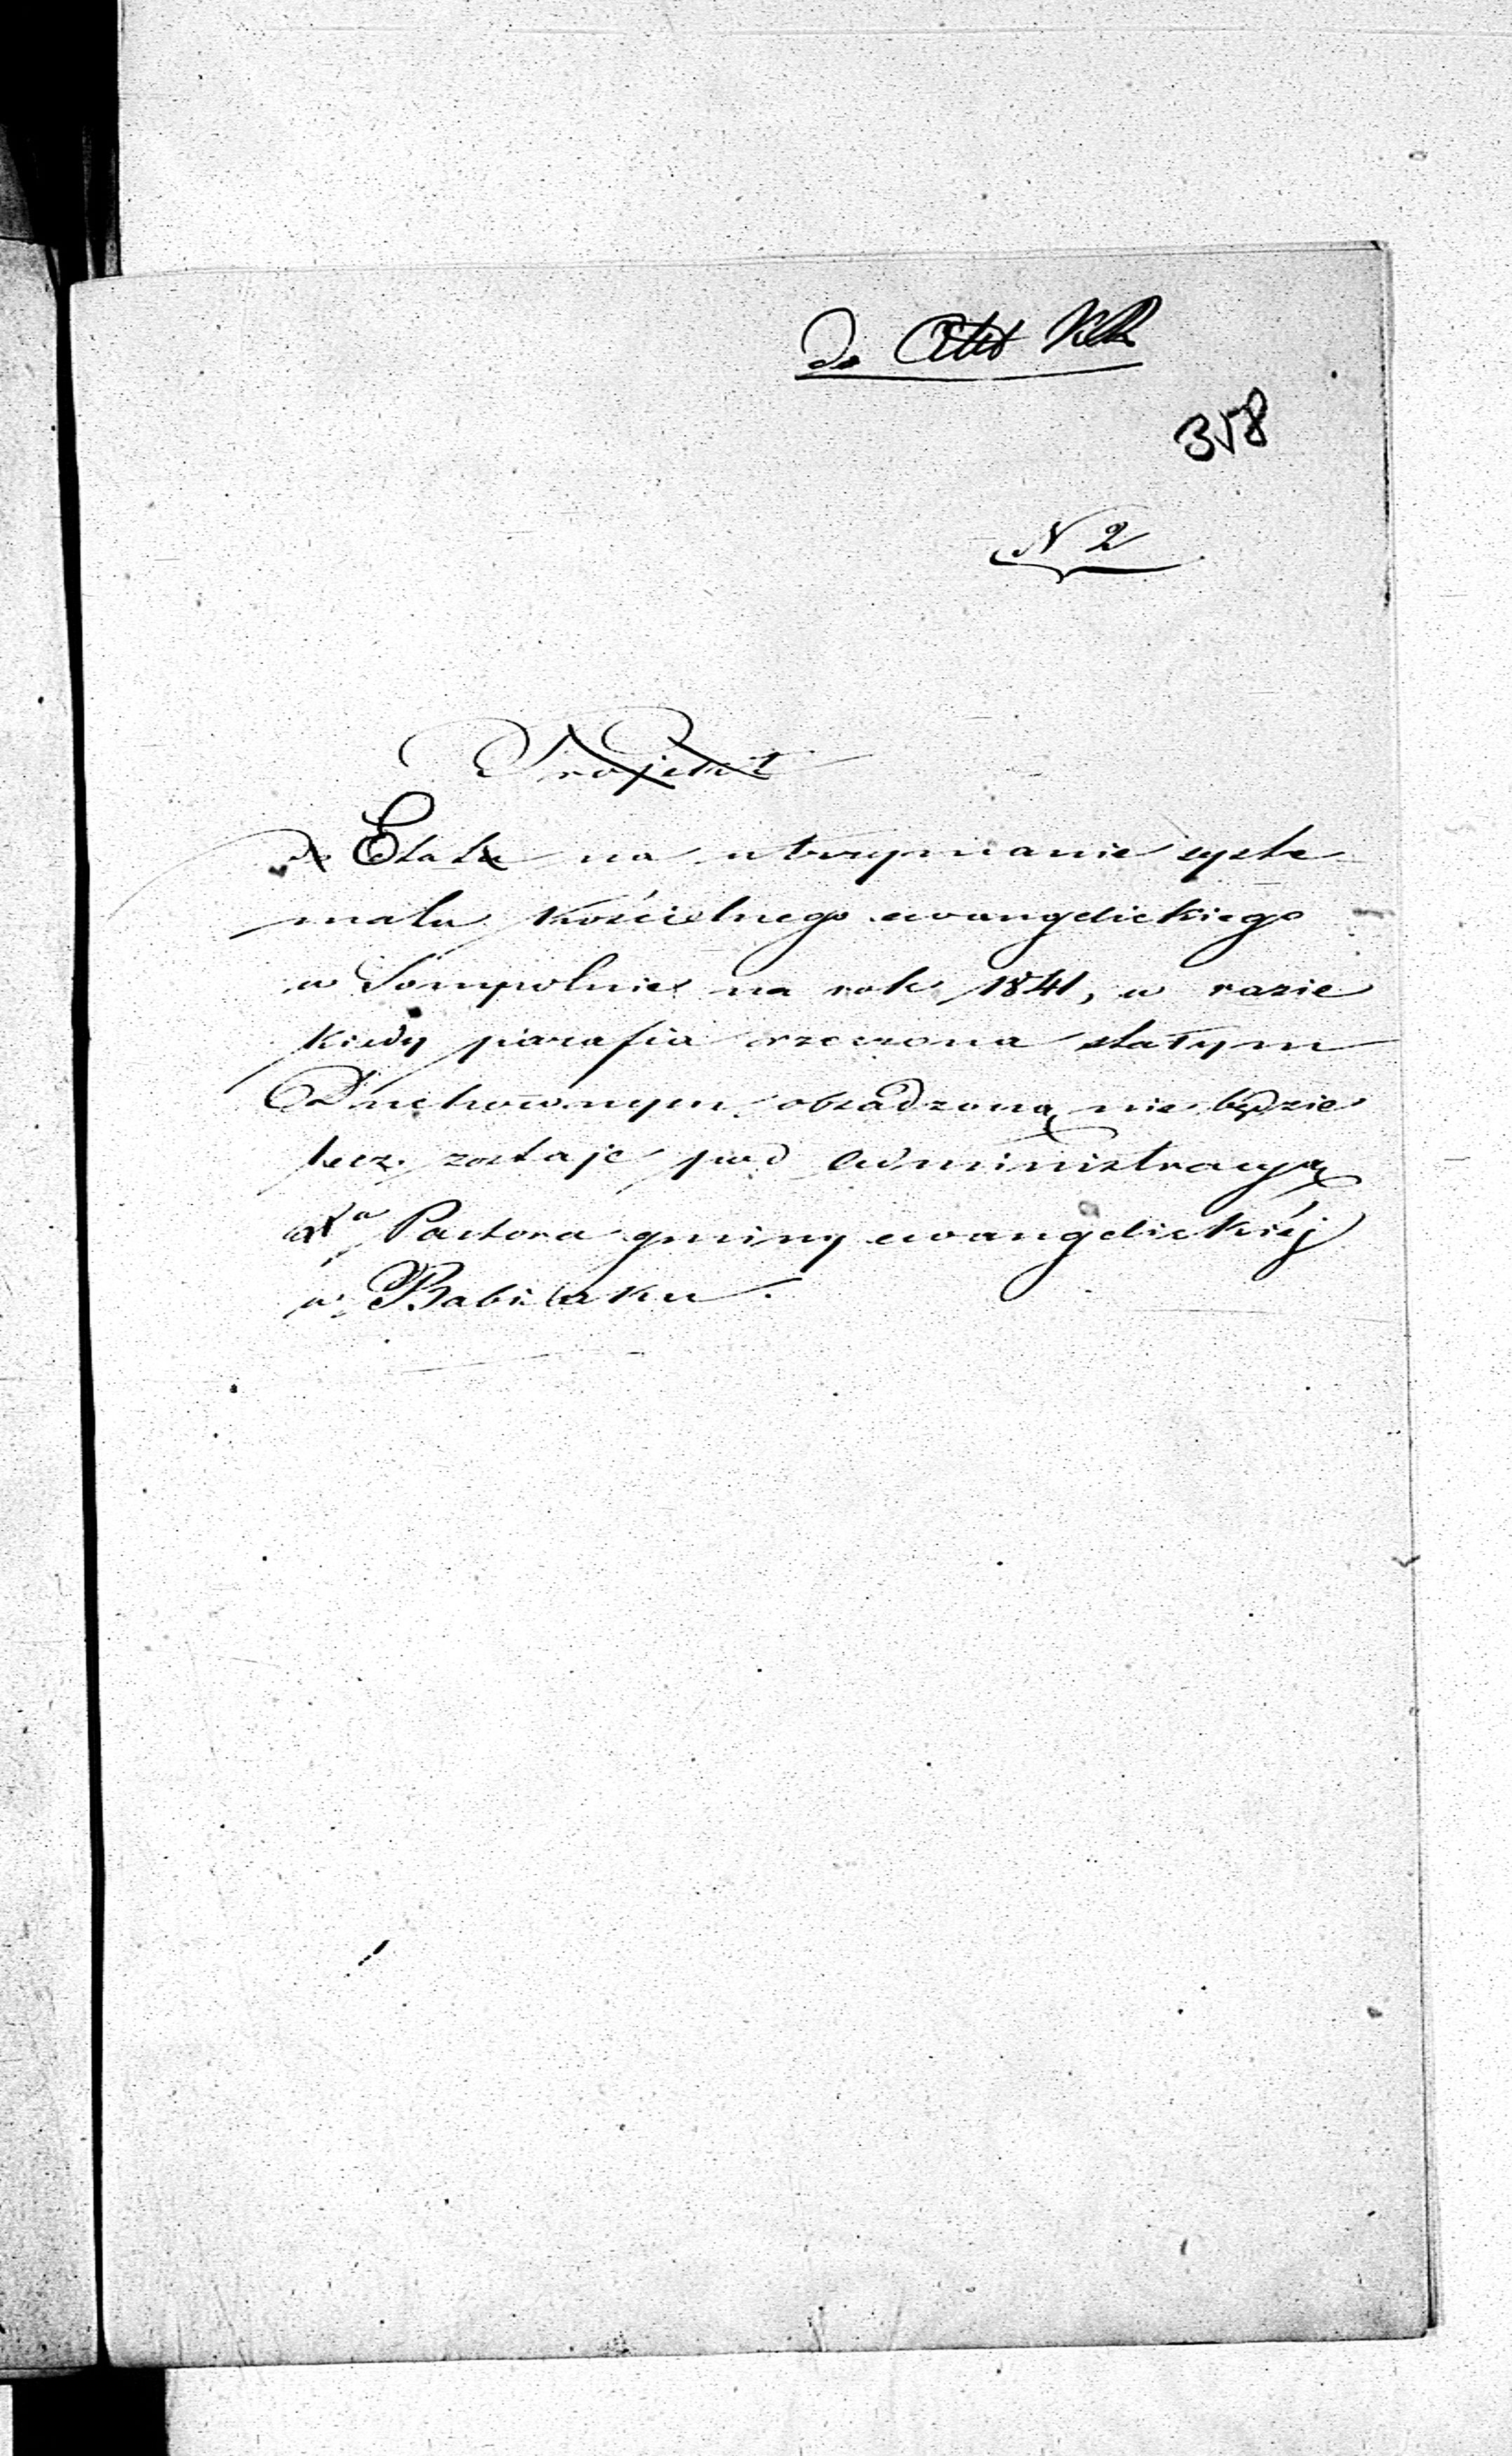 Do Akt
358
N 2
Projekt
do Etatu na utrzymanie syste
matu kościelnego ewangelickiego
w Sompolnie na rok 1841, w razie
kiedy parafia rzeczona stałym
Duchownym obsadzoną nie będzie
lecz zostaje pod administracyą
Xa Pastora gminy ewangelickiéj
w Babiaku.